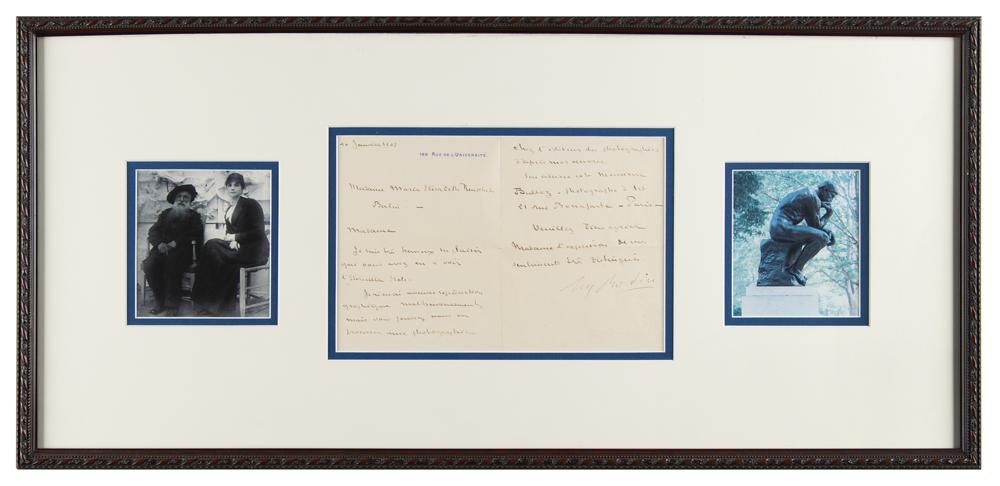 Janvier
182 RUE DE L'UNIVERSITÉ
Madame Maria Elisabeth
Berlin —
Madame
Je suis très heureux du plaisir
que vous avez eu à voir
l'
Je n'ai aucune reproduction
graphique malheureusement,
mais vous pouvez vous en
procurer une photographie
chez l'éditeur des photographies
d'après mes œuvres.
Son adresse est Monsieur
Bulloz - photographe d'Art
21 rue Bonaparte - Paris -
Veuillez
Madame l'expression de mes
sentiments très distingués
Aug Rodin